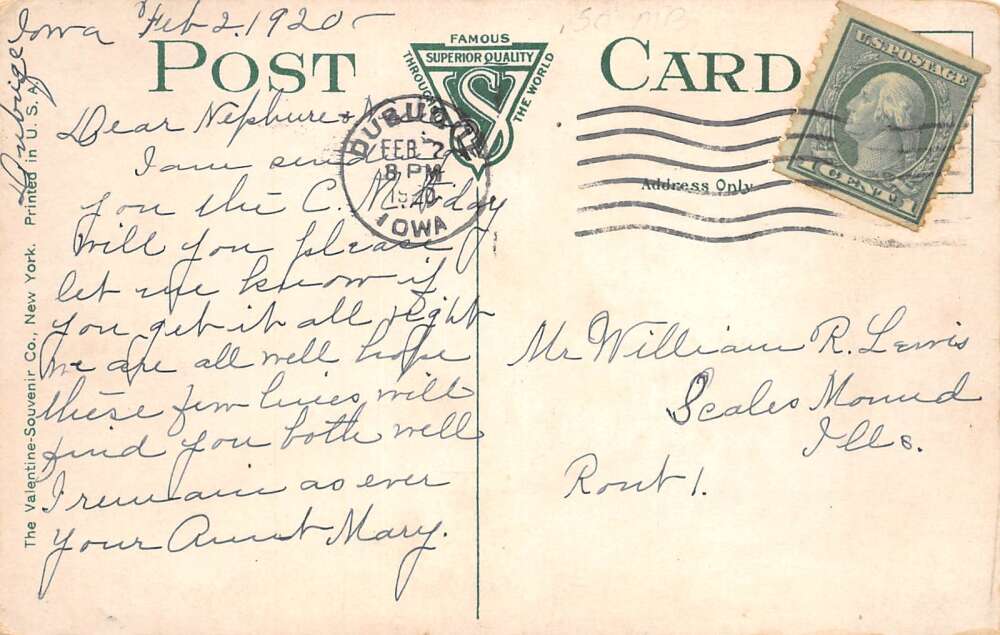 Dubuqe
Iowa Feb 2. 1920
.50 MP
POST CARD
FAMOUS
SUPERIOR QUALITY
THROUGHOUT
THE WORLD
Dear Nephure +
I am sending
you the C. N. to day
will you please
let me know if
you get it all right
we are all well hope
these few lines will
find you both well
I remain as ever
your Aunt Mary.
DUBUQUE
FEB 2
8 PM
1920
IOWA
U.S. POSTAGE
1 CENT 1
Address Only
Mr William R. Lewis
Scales Mound
Ills.
Rout 1.
The Valentine-Souvenir Co., New York. Printed in U. S. A.